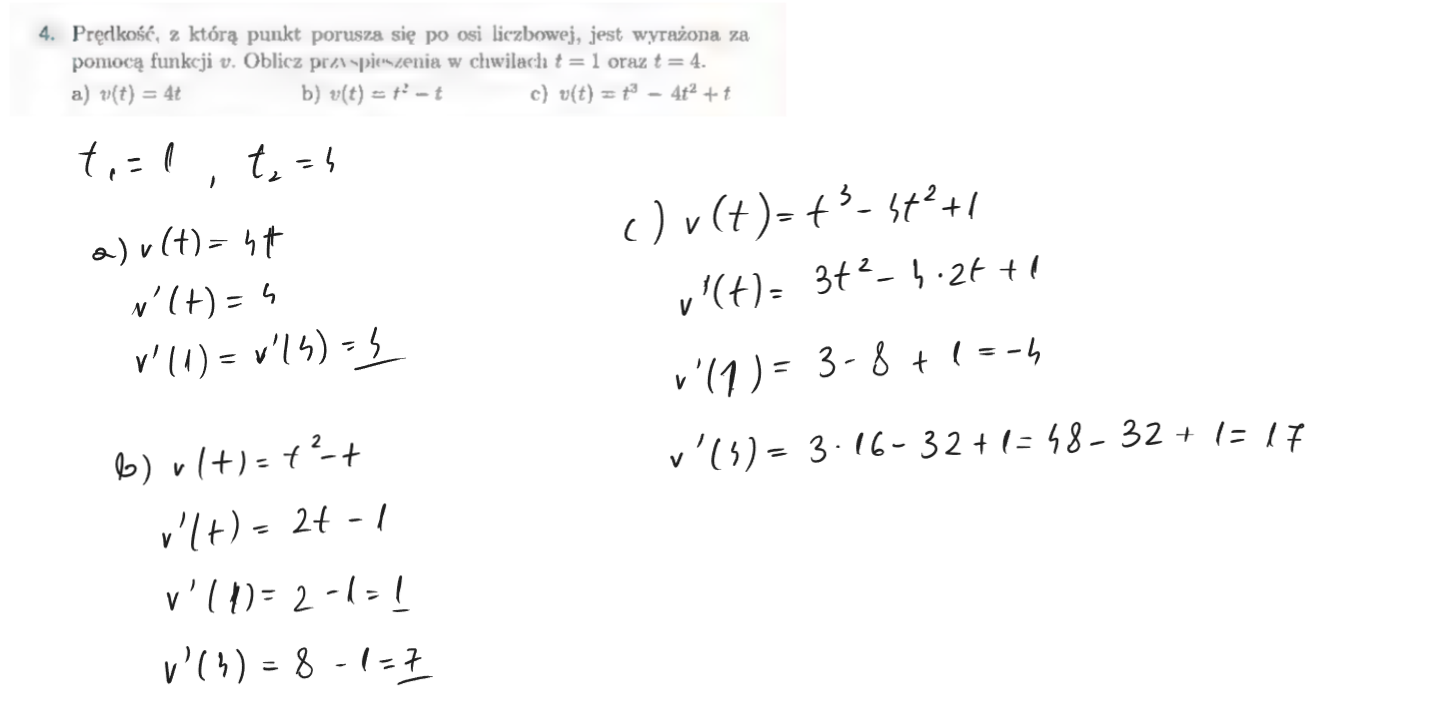 4. Prędkość, z którą punkt porusza się po osi liczbowej, jest wyrażona za
pomocą funkcji v. Oblicz przyspieszenia w chwilach t = 1 oraz t = 4.
a) v(t) = 4t b) v(t) = t² − t c) v(t) = t³ − 4t² + t
t₁ = 1 , t₂ = 4
a) v(t) = 4t
v'(t) = 4
v'(1) = v'(4) = 4
b) v(t) = t² - t
v'(t) = 2t - 1
v'(1) = 2 - 1 = 1
v'(4) = 8 - 1 = 7
c) v(t) = t³ - 4t² + 1
v'(t) = 3t² - 4·2t + 1
v'(1) = 3 - 8 + 1 = -4
v'(4) = 3·16 - 32 + 1 = 48 - 32 + 1 = 17